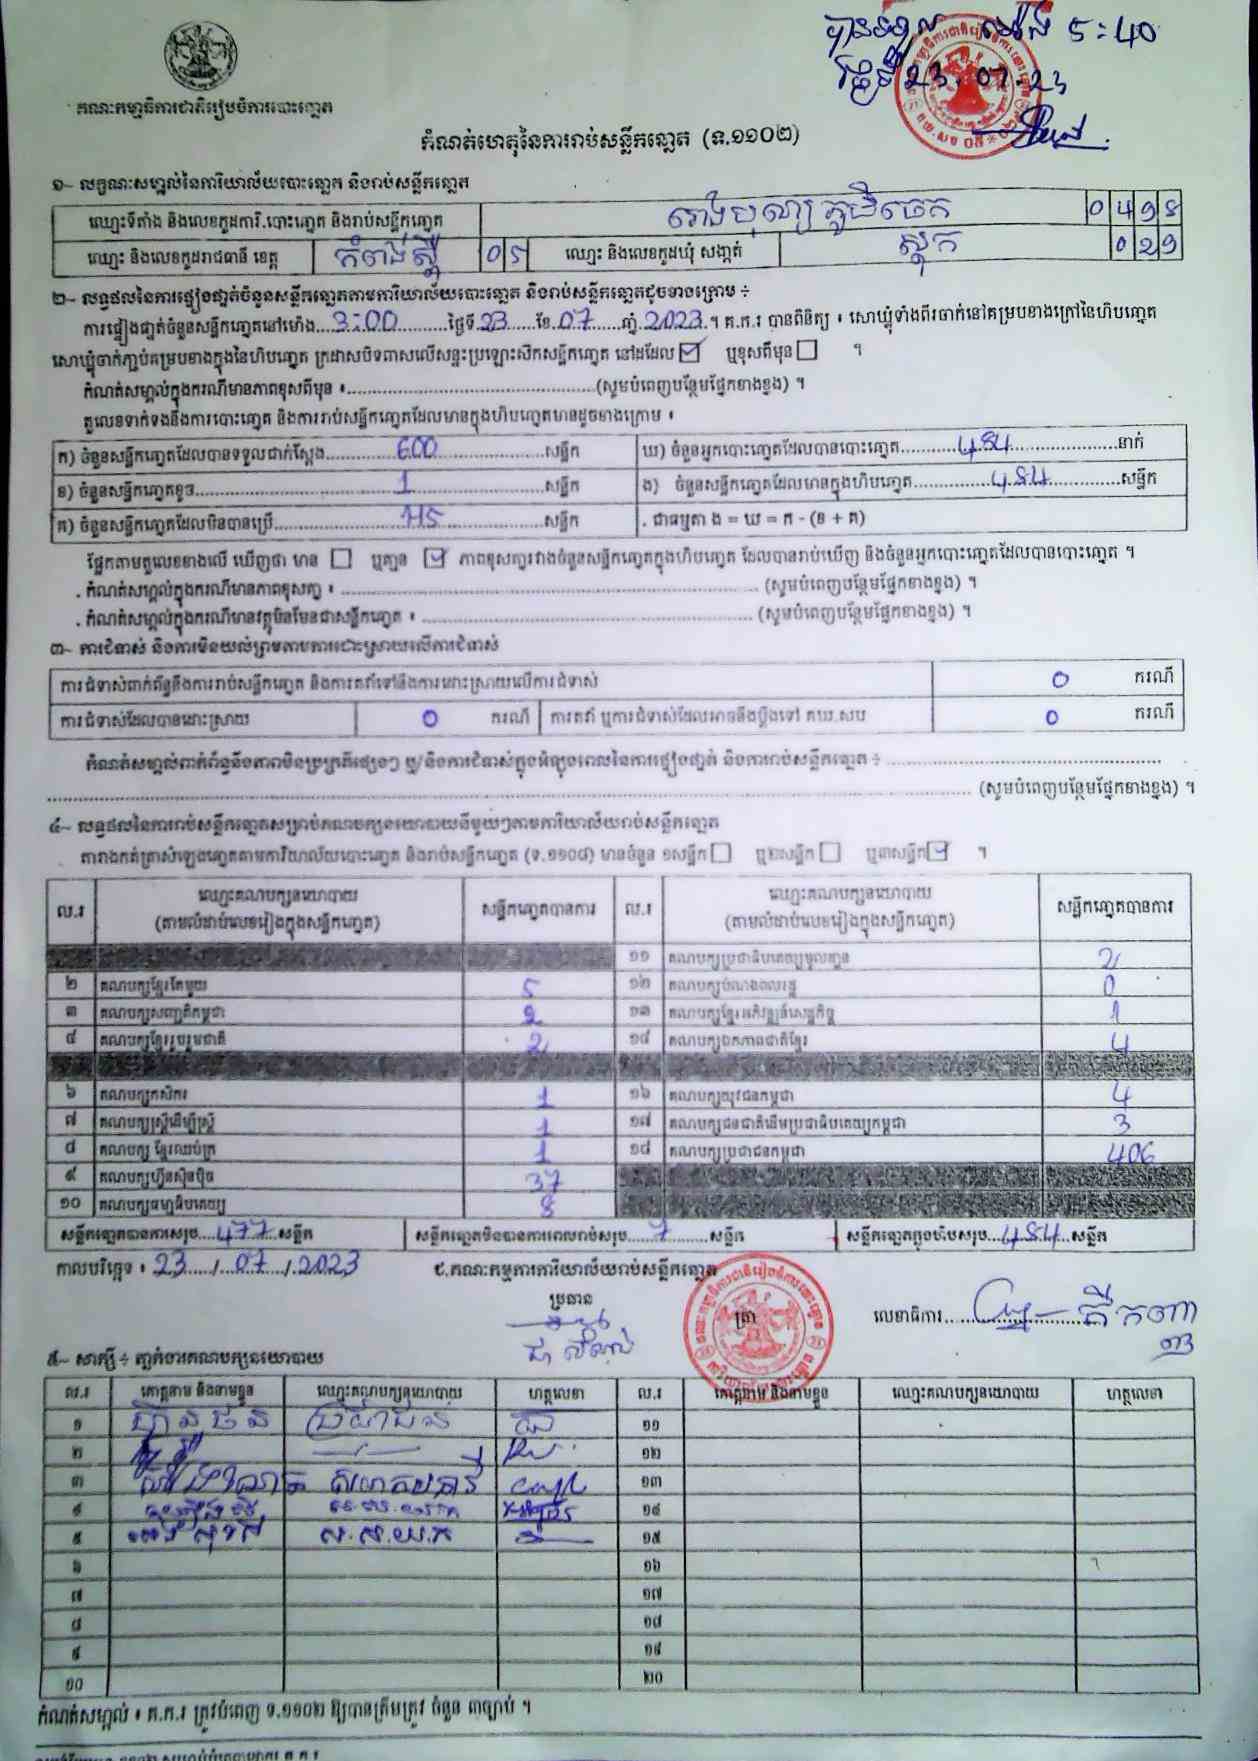 បានទទួល ម៉ោង 5:40
ថ្ងៃទី 23.07.23
គណៈកម្មាធិការជាតិរៀបចំការបោះឆ្នោត
កំណត់ហេតុនៃការរាប់សន្លឹកឆ្នោត (ទ.១១០២)
១~ លក្ខណៈសម្គាល់នៃការិយាល័យបោះឆ្នោត និងរាប់សន្លឹកឆ្នោត
ឈ្មោះទីតាំង និងលេខកូដការិ.បោះឆ្នោត និងរាប់សន្លឹកឆ្នោត រោងបុណ្យភូមិចេក
ឈ្មោះ និងលេខកូដរាជធានី ខេត្ត កំពង់ស្ពឺ 05 ឈ្មោះ និងលេខកូដឃុំ សង្កាត់ ស្នុក
២~ លទ្ធផលនៃការផ្ទៀងផ្ទាត់ចំនួនសន្លឹកឆ្នោតតាមការិយាល័យបោះឆ្នោត និងរាប់សន្លឹកឆ្នោតដូចខាងក្រោម ÷
ការផ្ទៀងផ្ទាត់ចំនួនសន្លឹកឆ្នោតនៅម៉ោង 3:00 ថ្ងៃទី 23 ខែ 07 ឆ្នាំ 2023 ។ គ.ក.រ បានពិនិត្យ ៖ សោឃ្មុំទាំងពីរចាក់នៅគម្របខាងក្រៅនៃហិបឆ្នោត
សោឃ្មុំចាក់ភ្ជាប់គម្របខាងក្នុងនៃហិបឆ្នោត ក្រដាសបិទពាសលើសន្ទះប្រឡោះសឹកសន្លឹកឆ្នោត នៅដដែល ឬខុសពីមុន ។
កំណត់សម្គាល់ក្នុងករណីមានភាពខុសពីមុន ៖ (សូមបំពេញបន្ថែមផ្នែកខាងខ្នង) ។
តួលេខទាក់ទងនឹងការបោះឆ្នោត និងការរាប់សន្លឹកឆ្នោតដែលមានក្នុងហិបឆ្នោតមានដូចខាងក្រោម ៖
ក) ចំនួនសន្លឹកឆ្នោតដែលបានទទួលជាក់ស្តែង 600 សន្លឹក ឃ) ចំនួនអ្នកបោះឆ្នោតដែលបានបោះឆ្នោត 484 នាក់
ខ) ចំនួនសន្លឹកឆ្នោតខូច 1 សន្លឹក ង) ចំនួនសន្លឹកឆ្នោតដែលមានក្នុងហិបឆ្នោត 484 សន្លឹក
គ) ចំនួនសន្លឹកឆ្នោតដែលមិនបានប្រើ 115 សន្លឹក . ជាធម្មតា ង = ឃ = ក - (ខ + គ)
ផ្អែកតាមតួលេខខាងលើ ឃើញថា មាន ឬគ្មាន ភាពខុសគ្នារវាងចំនួនសន្លឹកឆ្នោតក្នុងហិបឆ្នោត ដែលបានរាប់ឃើញ និងចំនួនអ្នកបោះឆ្នោតដែលបានបោះឆ្នោត ។
. កំណត់សម្គាល់ក្នុងករណីមានភាពខុសគ្នា ៖ (សូមបំពេញបន្ថែមផ្នែកខាងខ្នង) ។
. កំណត់សម្គាល់ក្នុងករណីមានវត្ថុមិនមែនជាសន្លឹកឆ្នោត ៖ (សូមបំពេញបន្ថែមផ្នែកខាងខ្នង) ។
៣~ ការជំទាស់ និងការមិនយល់ព្រមតាមការដោះស្រាយលើការជំទាស់
ការជំទាស់ពាក់ព័ន្ធនឹងការរាប់សន្លឹកឆ្នោត និងការតវ៉ាទៅនឹងការដោះស្រាយលើការជំទាស់ 0 ករណី
ការជំទាស់ដែលបានដោះស្រាយ 0 ករណី ការតវ៉ា ឬការជំទាស់ដែលអាចនឹងប្តឹងទៅ គឃ.សប 0 ករណី
កំណត់សម្គាល់ពាក់ព័ន្ធនឹងភាពមិនប្រក្រតីផ្សេងៗ ឬ/និងការជំទាស់ក្នុងអំឡុងពេលនៃការផ្ទៀងផ្ទាត់ និងការរាប់សន្លឹកឆ្នោត ÷
(សូមបំពេញបន្ថែមផ្នែកខាងខ្នង) ។
៤~ លទ្ធផលនៃការរាប់សន្លឹកឆ្នោតសម្រាប់គណបក្សនយោបាយនីមួយៗតាមការិយាល័យរាប់សន្លឹកឆ្នោត
តារាងកត់ត្រាសំឡេងឆ្នោតតាមការិយាល័យបោះឆ្នោត និងរាប់សន្លឹកឆ្នោត (ទ.១១០៨) មានចំនួន ១សន្លឹក ឬ២សន្លឹក ឬ៣សន្លឹក ។
ល.រ ឈ្មោះគណបក្សនយោបាយ (តាមលំដាប់លេខរៀងក្នុងសន្លឹកឆ្នោត) សន្លឹកឆ្នោតបានការ ល.រ ឈ្មោះគណបក្សនយោបាយ (តាមលំដាប់លេខរៀងក្នុងសន្លឹកឆ្នោត) សន្លឹកឆ្នោតបានការ
១១ គណបក្សប្រជាធិបតេយ្យមូលដ្ឋាន 2
២ គណបក្សខ្មែរតែមួយ 5 ១២ គណបក្សបំណងពលរដ្ឋ 0
៣ គណបក្សសញ្ជាតិកម្ពុជា 2 ១៣ គណបក្សខ្មែរអភិវឌ្ឍន៍សេដ្ឋកិច្ច 1
៤ គណបក្សខ្មែររួបរួមជាតិ 2 ១៤ គណបក្សឯកភាពជាតិខ្មែរ 4
៦ គណបក្សកសិករ 1 ១៦ គណបក្សយុវជនកម្ពុជា 4
៧ គណបក្សស្ត្រីដើម្បីស្ត្រី 1 ១៧ គណបក្សជនជាតិដើមប្រជាធិបតេយ្យកម្ពុជា 3
៨ គណបក្ស ខ្មែរឈប់ក្រ 1 ១៨ គណបក្សប្រជាជនកម្ពុជា 406
៩ គណបក្សហ៊្វុនស៊ិនប៉ិច 37
១០ គណបក្សធម្មាធិបតេយ្យ 8
សន្លឹកឆ្នោតបានការសរុប 477 សន្លឹក សន្លឹកឆ្នោតមិនបានការពេលរាប់សរុប 7 សន្លឹក សន្លឹកឆ្នោតក្នុងហិបសរុប 484 សន្លឹក
កាលបរិច្ឆេទ ៖ 23 / 07 / 2023 ៩.គណៈកម្មការការិយាល័យរាប់សន្លឹកឆ្នោត
ប្រធាន ត្រា លេខាធិការ
៥~ សាក្សី ÷ ភ្នាក់ងារគណបក្សនយោបាយ
ល.រ គោត្តនាម និងនាមខ្លួន ឈ្មោះគណបក្សនយោបាយ ហត្ថលេខា ល.រ គោត្តនាម និងនាមខ្លួន ឈ្មោះគណបក្សនយោបាយ ហត្ថលេខា
១ ប្រជាជន ១១
២ ១២
៣ ១៣
៤ ១៤
៥ ស.ស.យ.ក ១៥
៦ ១៦
៧ ១៧
៨ ១៨
៩ ១៩
១០ ២០
កំណត់សម្គាល់ ៖ គ.ក.រ ត្រូវបំពេញ ទ.១១០២ ឱ្យបានត្រឹមត្រូវ ចំនួន ៣ច្បាប់ ។